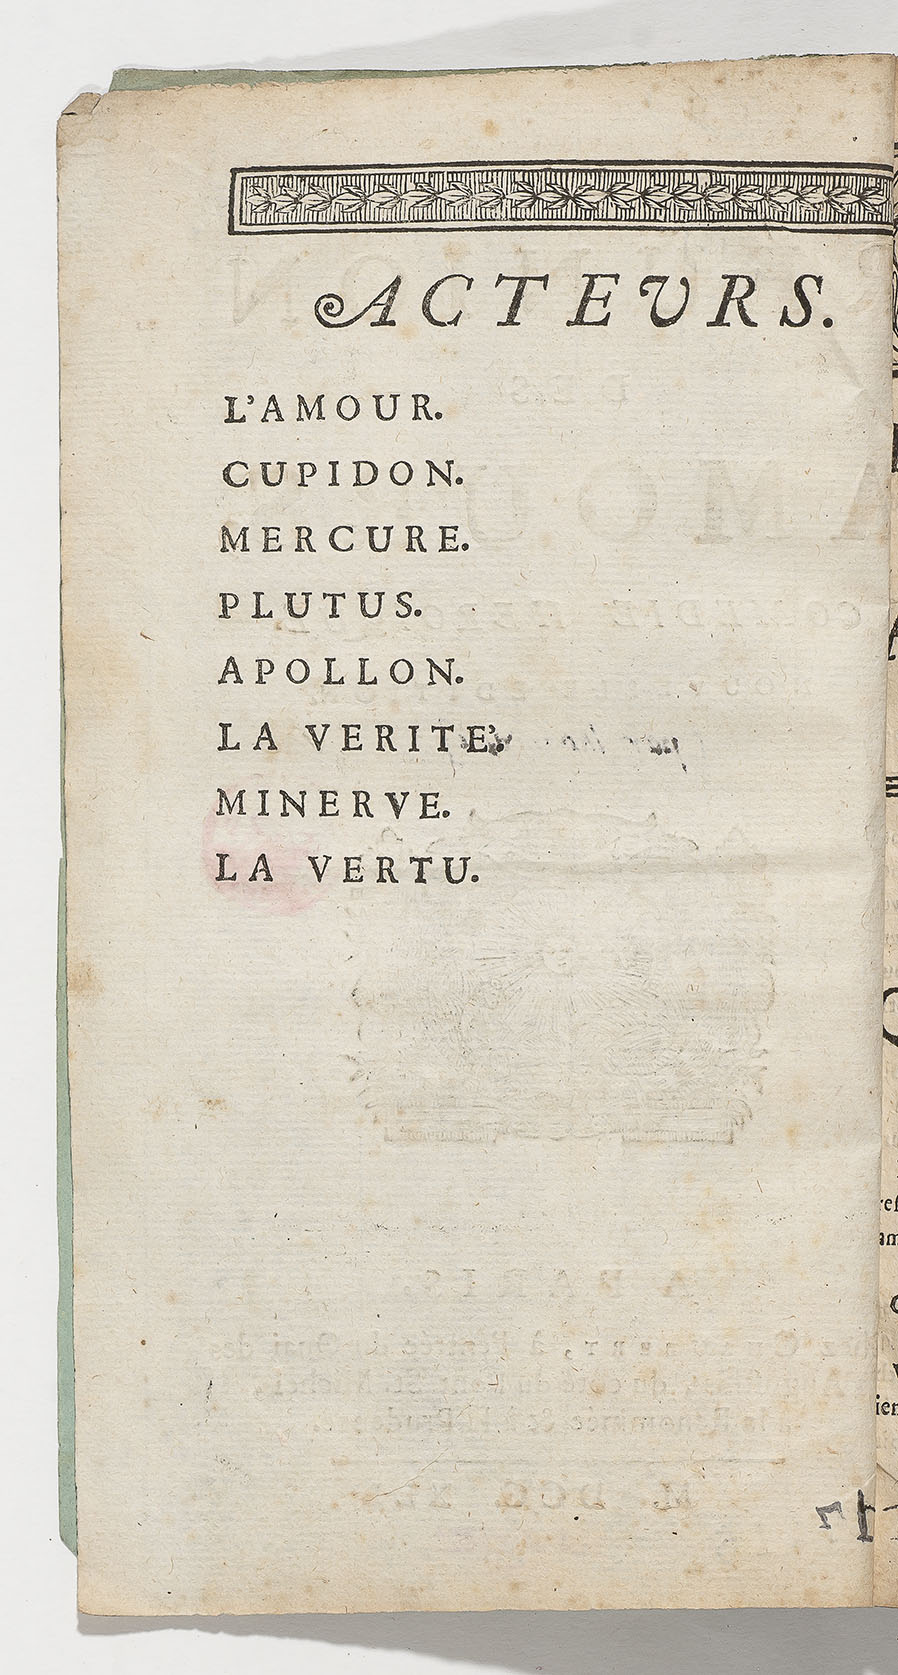 ACTEURS.
L'AMOUR.
CUPIDON.
MERCURE.
PLUTUS.
APOLLON.
LA VERITE'.
MINERVE.
LA VERTU.